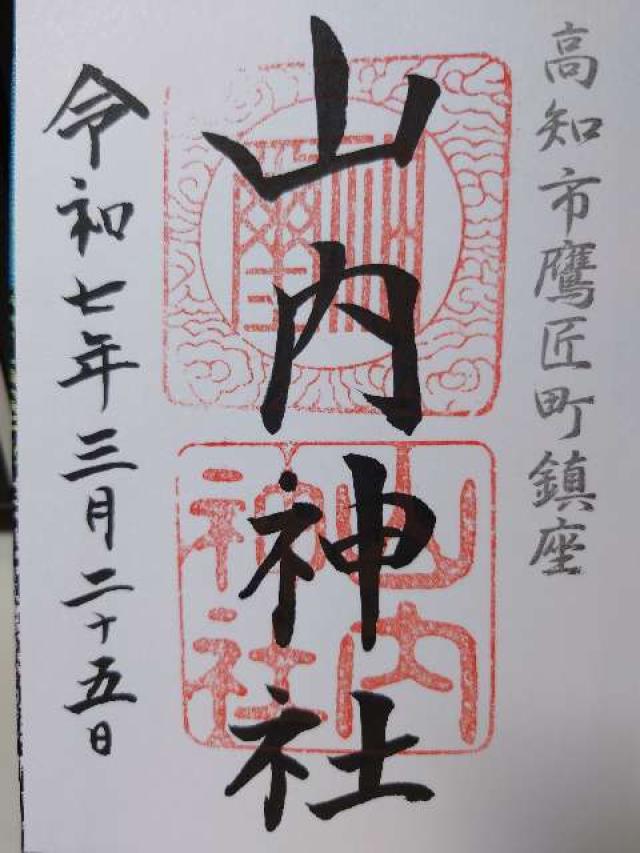 高知市鷹匠町鎮座
山内神社
山内
神社
令和七年三月二十五日